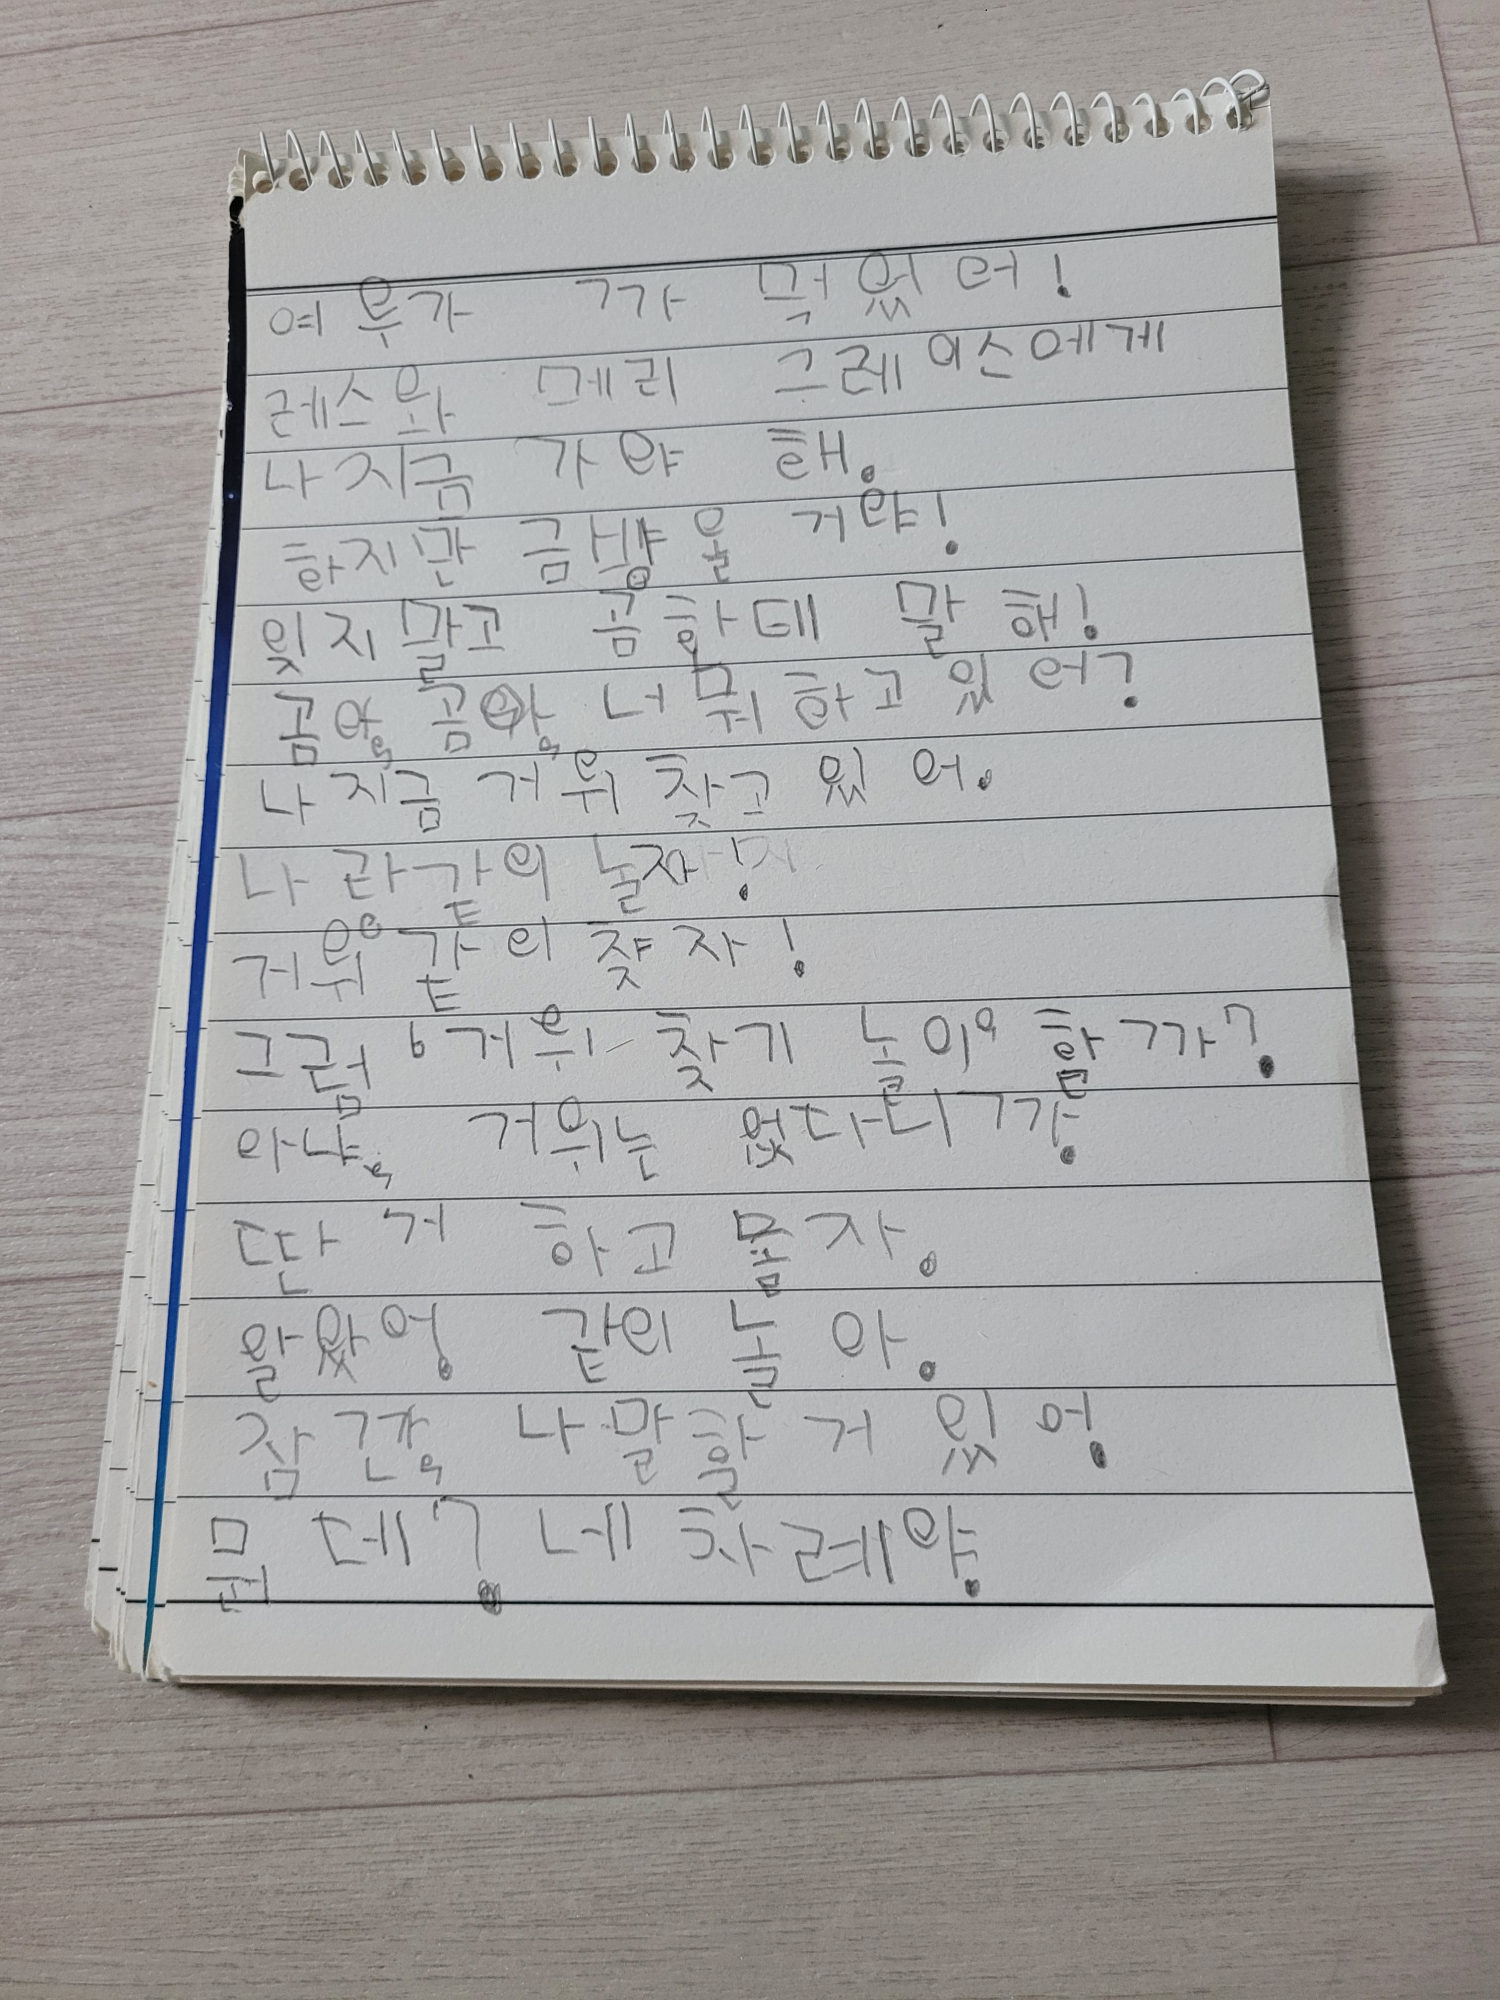 여우가 가 먹었어!
레스와 메리 그레이스에게
나 지금 가야 해.
하지만 금방 올 거야!
잊지 말고 곰한테 말해!
곰아, 곰아, 너 뭐하고 있어?
나 지금 거위 찾고 있어.
나라같이 놀자!
거위 같이 찾자!
그럼 거위 찾기 놀이 함까?
아냐, 거위는 없다니깐
딴 거 하고 놀자.
알았어 같이 놀아.
잠깐, 나 말할 거 있어
뭔데? 네 차례야